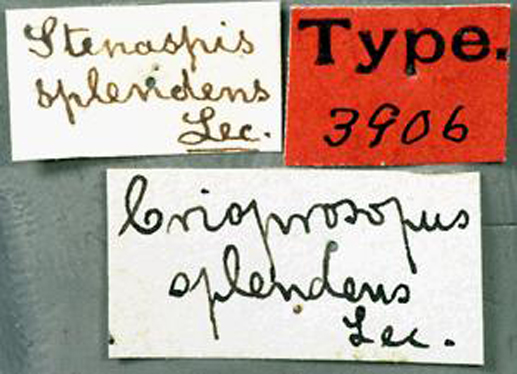 Stenaspis
splendens
Lec.
Type.
3906
Crioprosopus
splendens
Lec.